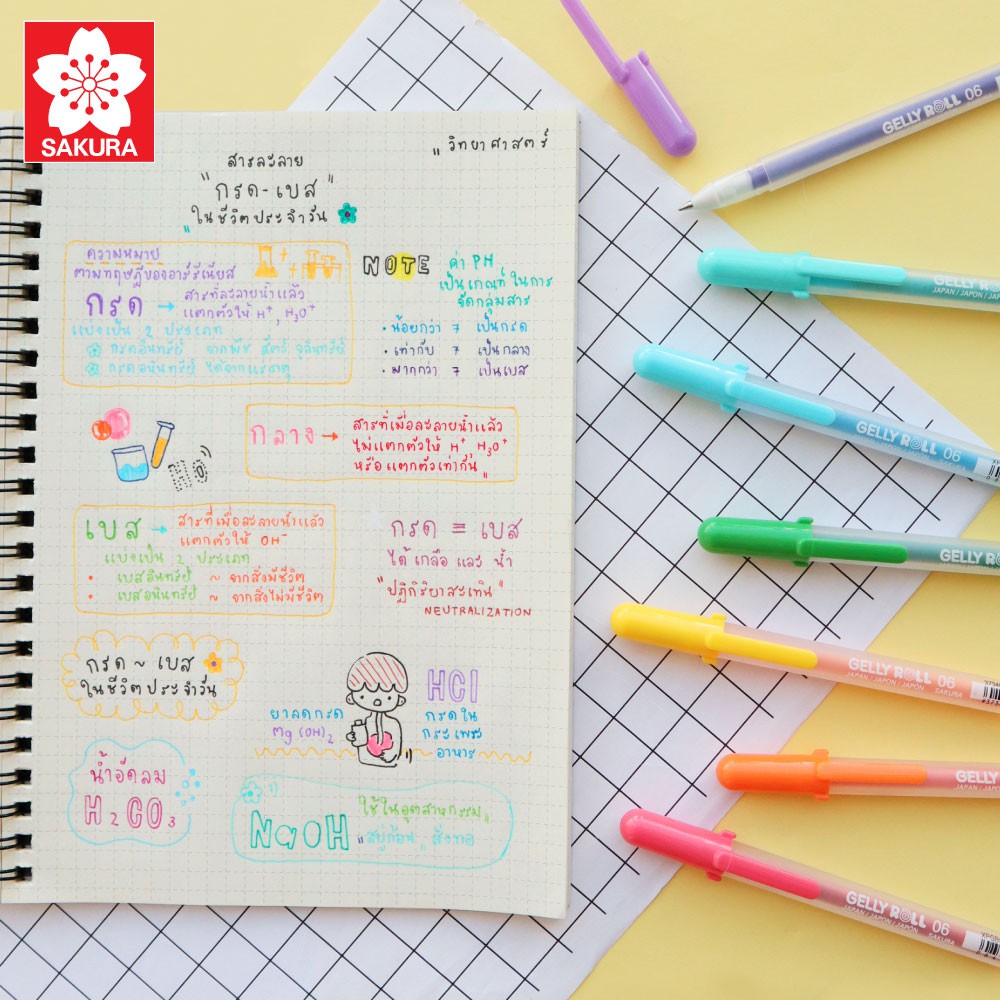 SAKURA
"วิทยาศาสตร์
สารละลาย
"กรด-เบส"
"ในชีวิตประจำวัน
ความหมาย
ตามทฤษฎีของอาร์รีเนียส
กรด → สารที่ละลายน้ำแล้ว
แตกตัวให้ H⁺, H₃O⁺
แบ่งเป็น 2 ประเภท
กรดอินทรีย์ จากพืช สัตว์ จุลินทรีย์
กรดอนินทรีย์ ได้จากแร่ธาตุ
NOTE
ค่า PH
เป็นเกณฑ์ในการ
จัดกลุ่มสาร
• น้อยกว่า 7 เป็นกรด
• เท่ากับ 7 เป็นกลาง
• มากกว่า 7 เป็นเบส
กลาง → สารที่เมื่อละลายน้ำแล้ว
ไม่แตกตัวให้ H⁺, H₃O⁺
หรือแตกตัวเท่ากัน"
เบส → สารที่เมื่อละลายน้ำแล้ว
แตกตัวให้ OH⁻
แบ่งเป็น 2 ประเภท
• เบสอินทรีย์ ~ จากสิ่งมีชีวิต
• เบสอนินทรีย์ ~ จากสิ่งไม่มีชีวิต
กรด = เบส
ได้เกลือ และ น้ำ
"ปฏิกิริยาสะเทิน"
NEUTRALIZATION
กรด ~ เบส
ในชีวิตประจำวัน
ยาลดกรด
Mg(OH)₂
HCl
กรดใน
กระเพาะ
อาหาร
น้ำอัดลม
H₂CO₃
NaOH
ใช้ในอุตสาหกรรม"
"สบู่ก้อน" สิ่งทอ
GELLY ROLL 06
GELLY ROLL
JAPAN / JAPON / JAPÓN
GELLY ROLL 06
GELLY ROLL
GELLY ROLL 06
JAPAN / JAPON / JAPÓN SAKURA
GELLY
JAPAN / JAPON
GELLY ROLL 06
JAPAN / JAPON / JAPÓN SAKURA